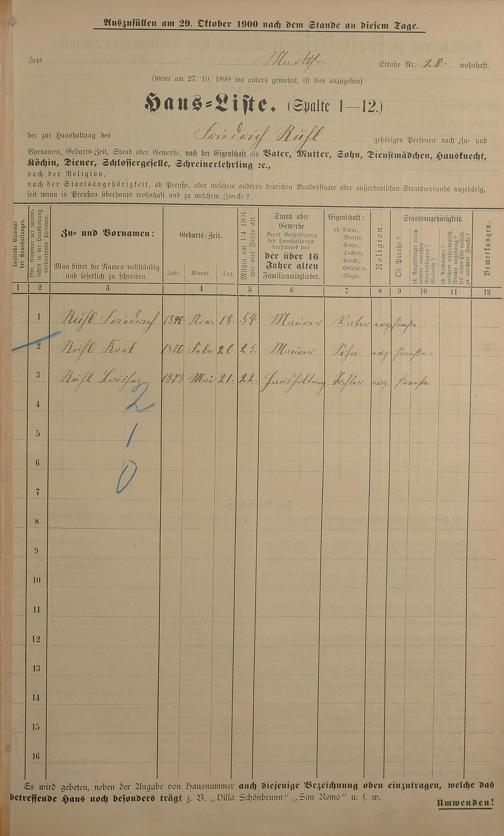 Auszufüllen am 29. Oktober 1900 nach dem Stande an diesem Tage.
Jetzt Markt Straße Nr. 28. wohnhaft.
(wenn am 27. 10. 1899 wo anders gewohnt, ist dies anzugeben)
Haus-Liste. (Spalte 1—12.)
der zur Haushaltung des Friedrich Ruhl gehörigen Personen nach Zu- und
Vornamen, Geburts-Zeit, Stand oder Gewerbe, nach der Eigenschaft als Vater, Mutter, Sohn, Dienstmädchen, Hausknecht,
Köchin, Diener, Schlossergeselle, Schreinerlehrling ꝛc.,
nach der Religion,
nach der Staatsangehörigkeit, ob Preuße, oder welchem anderen deutschen Bundesstaate oder außerdeutschen Staatsverbande angehörig,
seit wann in Preußen überhaupt wohnhaft und zu welchem Zweck?
Zu- und Vornamen:
Man bittet die Namen vollständig
und leserlich zu schreiben.
Geburts-Zeit.
Jahr. Monat. Tag.
Mithin am 1/4 1901
wie viel Jahre alt
Stand oder
Gewerbe
der über 16
Jahre alten
Familienglieder.
Eigenschaft:
ob Vater,
Mutter,
Sohn,
Tochter,
Knecht,
Geselle u.
Magd.
Religion.
Staatsangehörigkeit.
Ob Preuße?
Bemerkungen.
1 2 3 4 5 6 7 8 9 10 11 12
1 Ruhl Friedrich 1846 Nov. 18. 54. Maurer Vater evg Preuße.
2 Ruhl Karl 1876 Febr. 26. 25. Maurer Sohn evg. Preuße.
3 Ruhl 1878 Mai 21. 22. Haushaltung Tochter evg. Preuße
4 2
5 1
6
7 0
8
9
10
11
12
13
14
15
16
Es wird gebeten, neben der Angabe von Hausnummer auch diejenige Bezeichnung oben einzutragen, welche das
betreffende Haus noch besonders trägt z. B. „Villa Schönbrunn“ „San Remo“ u. s. w.
Umwenden!